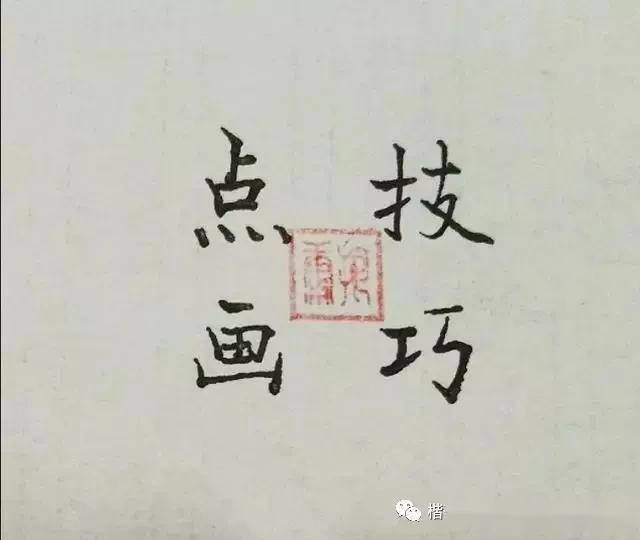 点画
技巧
楷